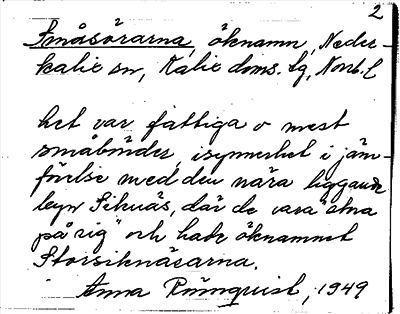 2
Småsörarna, öknamn, Neder-
kalix sn, Kalix doms. tg, Norrb. l
het var fattiga o mest
småbönder, isynnerhet i jäm-
förelse med den nära liggande
byn Siknäs, där de vara "stna
på sig" och hade öknamnet
Storsiknäsarna.
Anna Rönnquist, 1949